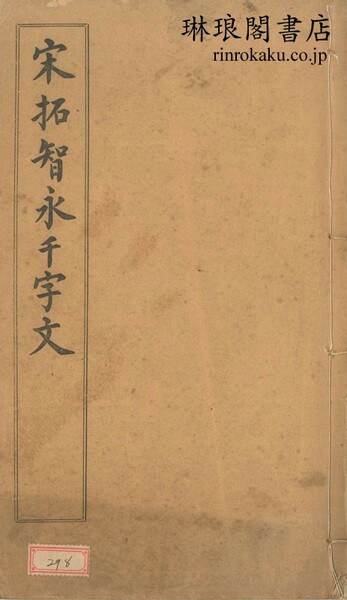 琳琅閣書店
rinrokaku.co.jp
宋拓智永千字文
298